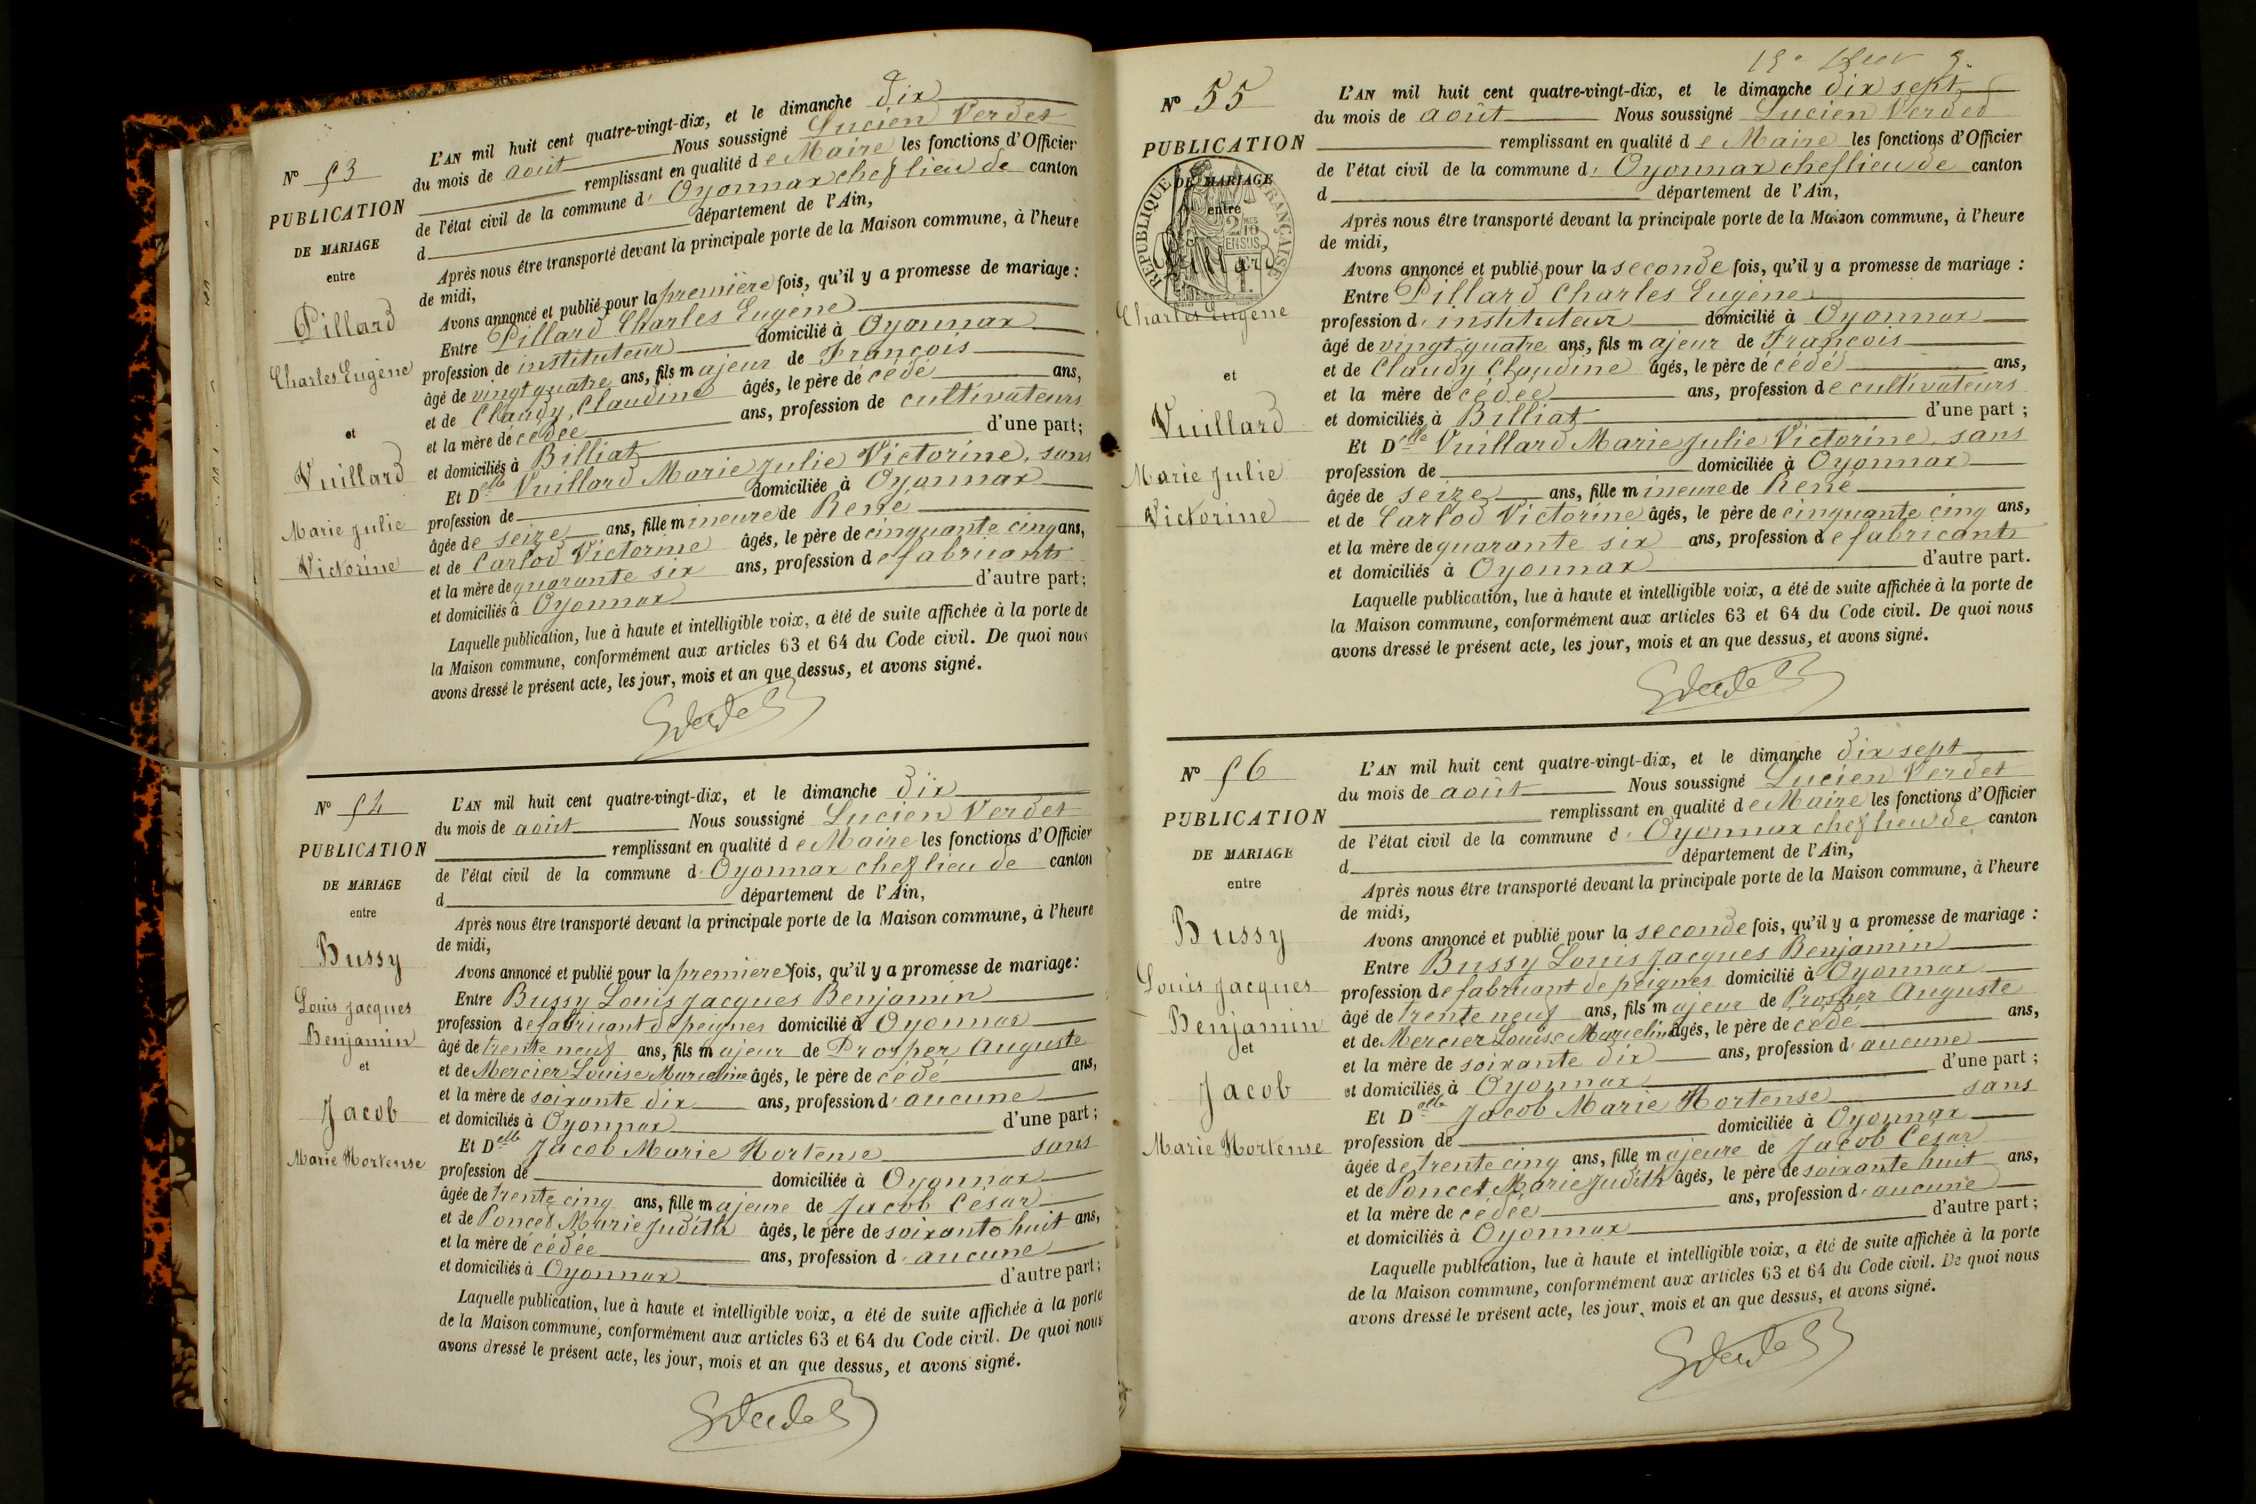 N° 53
PUBLICATION
DE MARIAGE
entre
Pillard
Charles Eugène
et
Vuillard
Marie Julie
Victorine
L'AN mil huit cent quatre-vingt-dix, et le dimanche dix
du mois de août Nous soussigné Lucien Verdet
remplissant en qualité de Maire les fonctions d'Officier
de l'état civil de la commune d' Oyonnax chef lieu de canton
d département de l'Ain,
Après nous être transporté devant la principale porte de la Maison commune, à l'heure
de midi,
Avons annoncé et publié pour la première fois, qu'il y a promesse de mariage :
Entre Pillard Charles Eugène
profession de instituteur domicilié à Oyonnax
âgé de vingt quatre ans, fils majeur de François
et de Claudy Claudine âgés, le père décédé ans,
et la mère décédée ans, profession de cultivateurs
et domiciliés à Billiat d'une part;
Et Delle Vuillard Marie Julie Victorine, sans
profession de domiciliée à Oyonnax
âgée de seize ans, fille mineure de René
et de Carlod Victorine âgés, le père de cinquante cinq ans,
et la mère de quarante six ans, profession de fabricants
et domiciliés à Oyonnax d'autre part;
Laquelle publication, lue à haute et intelligible voix, a été de suite affichée à la porte de
la Maison commune, conformément aux articles 63 et 64 du Code civil. De quoi nous
avons dressé le présent acte, les jour, mois et an que dessus, et avons signé.
N° 54
PUBLICATION
DE MARIAGE
entre
Bussy
Louis Jacques
Benjamin
et
Jacob
Marie Hortense
L'AN mil huit cent quatre-vingt-dix, et le dimanche dix
du mois de août Nous soussigné Lucien Verdet
remplissant en qualité de Maire les fonctions d'Officier
de l'état civil de la commune d' Oyonnax chef lieu de canton
d département de l'Ain,
Après nous être transporté devant la principale porte de la Maison commune, à l'heure
de midi,
Avons annoncé et publié pour la première fois, qu'il y a promesse de mariage:
Entre Bussy Louis Jacques Benjamin
profession de fabricant de peignes domicilié à Oyonnax
âgé de trente neuf ans, fils majeur de Prosper Auguste
et de Mercier Louise Marceline âgés, le père de cédé ans,
et la mère de soixante dix ans, profession d' aucune
et domiciliés à Oyonnax d'une part;
Et Delle Jacob Marie Hortense sans
profession de domiciliée à Oyonnax
âgée de trente cinq ans, fille majeure de Jacob César
et de Poncet Marie Judith âgés, le père de soixante huit ans,
et la mère de cédée ans, profession d' aucune
et domiciliés à Oyonnax d'autre part;
Laquelle publication, lue à haute et intelligible voix, a été de suite affichée à la porte
de la Maison commune, conformément aux articles 63 et 64 du Code civil. De quoi nous
avons dressé le présent acte, les jour, mois et an que dessus, et avons signé.
N° 55
PUBLICATION
DE MARIAGE
entre
RÉPUBLIQUE FRANÇAISE
Pillard
Charles Eugène
et
Vuillard
Marie Julie
Victorine
L'AN mil huit cent quatre-vingt-dix, et le dimanche dix sept
du mois de août Nous soussigné Lucien Verdet
remplissant en qualité de Maire les fonctions d'Officier
de l'état civil de la commune d' Oyonnax chef lieu de canton
d département de l'Ain,
Après nous être transporté devant la principale porte de la Maison commune, à l'heure
de midi,
Avons annoncé et publié pour la seconde fois, qu'il y a promesse de mariage :
Entre Pillard Charles Eugène
profession d' instituteur domicilié à Oyonnax
âgé de vingt quatre ans, fils majeur de François
et de Claudy Claudine âgés, le père décédé ans,
et la mère de cédée ans, profession de cultivateurs
et domiciliés à Billiat d'une part ;
Et Delle Vuillard Marie Julie Victorine, sans
profession de domiciliée à Oyonnax
âgée de seize ans, fille mineure de René
et de Carlod Victorine âgés, le père de cinquante cinq ans,
et la mère de quarante six ans, profession de fabricants
et domiciliés à Oyonnax d'autre part.
Laquelle publication, lue à haute et intelligible voix, a été de suite affichée à la porte de
la Maison commune, conformément aux articles 63 et 64 du Code civil. De quoi nous
avons dressé le présent acte, les jour, mois et an que dessus, et avons signé.
N° 56
PUBLICATION
DE MARIAGE
entre
Bussy
Louis Jacques
Benjamin
et
Jacob
Marie Hortense
L'AN mil huit cent quatre-vingt-dix, et le dimanche dix sept
du mois de août Nous soussigné Lucien Verdet
remplissant en qualité de Maire les fonctions d'Officier
de l'état civil de la commune d' Oyonnax chef lieu de canton
d département de l'Ain,
Après nous être transporté devant la principale porte de la Maison commune, à l'heure
de midi,
Avons annoncé et publié pour la seconde fois, qu'il y a promesse de mariage :
Entre Bussy Louis Jacques Benjamin
profession de fabricant de peignes domicilié à Oyonnax
âgé de trente neuf ans, fils majeur de Prosper Auguste
et de Mercier Louise Marceline âgés, le père de cédé ans,
et la mère de soixante dix ans, profession d' aucune
et domiciliés à Oyonnax d'une part ;
Et Delle Jacob Marie Hortense sans
profession de domiciliée à Oyonnax
âgée de trente cinq ans, fille majeure de Jacob César
et de Poncet Marie Judith âgés, le père de soixante huit ans,
et la mère de cédée ans, profession d' aucune
et domiciliés à Oyonnax d'autre part ;
Laquelle publication, lue à haute et intelligible voix, a été de suite affichée à la porte
de la Maison commune, conformément aux articles 63 et 64 du Code civil. De quoi nous
avons dressé le présent acte, les jour, mois et an que dessus, et avons signé.